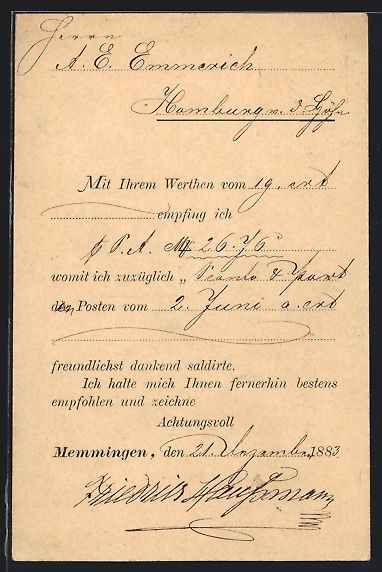 Herrn
A. E. Emmerich
Homburg v. d. Höhe
Mit Ihrem Werthen vom 19. crt
empfing ich
p P.A. M 26.76
womit ich zuzüglich „ Sconto & Port
den Posten vom 2. Juni a. crt
freundlichst dankend saldirte.
Ich halte mich Ihnen fernerhin bestens
empfohlen und zeichne
Achtungsvoll
Memmingen, den 21. Dezember 1883
Friedrich